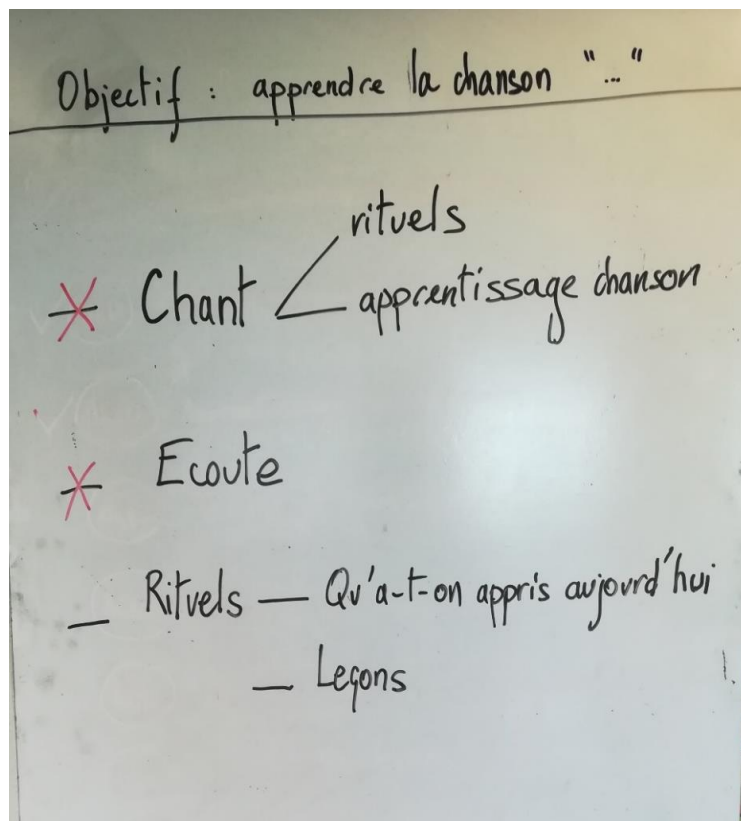 Objectif : apprendre la chanson "..."
rituels
Chant
apprentissage chanson
Ecoute
Rituels — Qu'a-t-on appris aujourd'hui
— Leçons